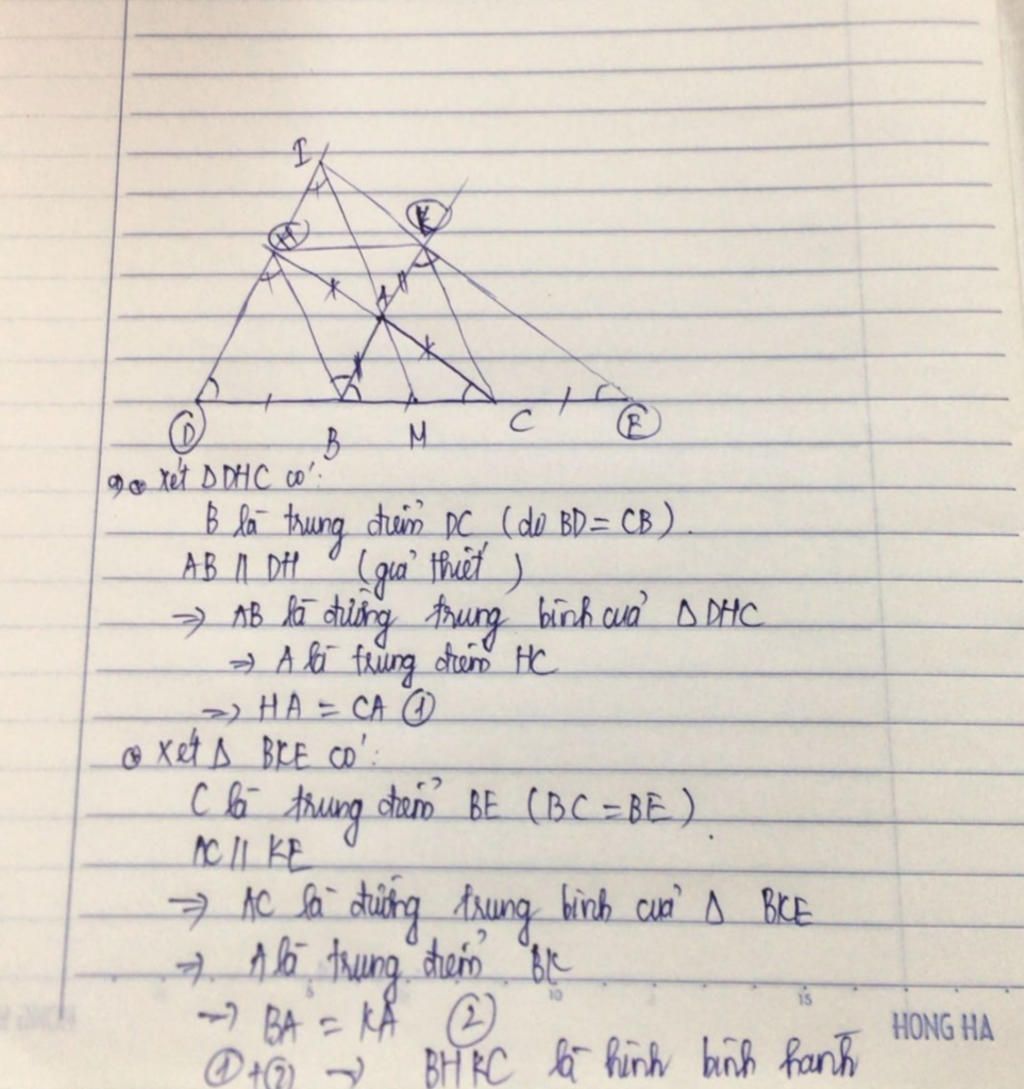 I
H
K
A
D
B
M
C
E
a) • Xét Δ DHC có:
B là trung điểm DC (do BD = CB).
AB // DH (giả thiết)
=> AB là đường trung bình của Δ DHC
=> A là trung điểm HC
=> HA = CA ①
• Xét Δ BKE có:
C là trung điểm BE (BC = BE).
AC // KE
=> AC là đường trung bình của Δ BKE
=> A là trung điểm BK
-> BA = KA ②
5 10 15
HONG HA
①+(2) -> BHKC là hình bình hành